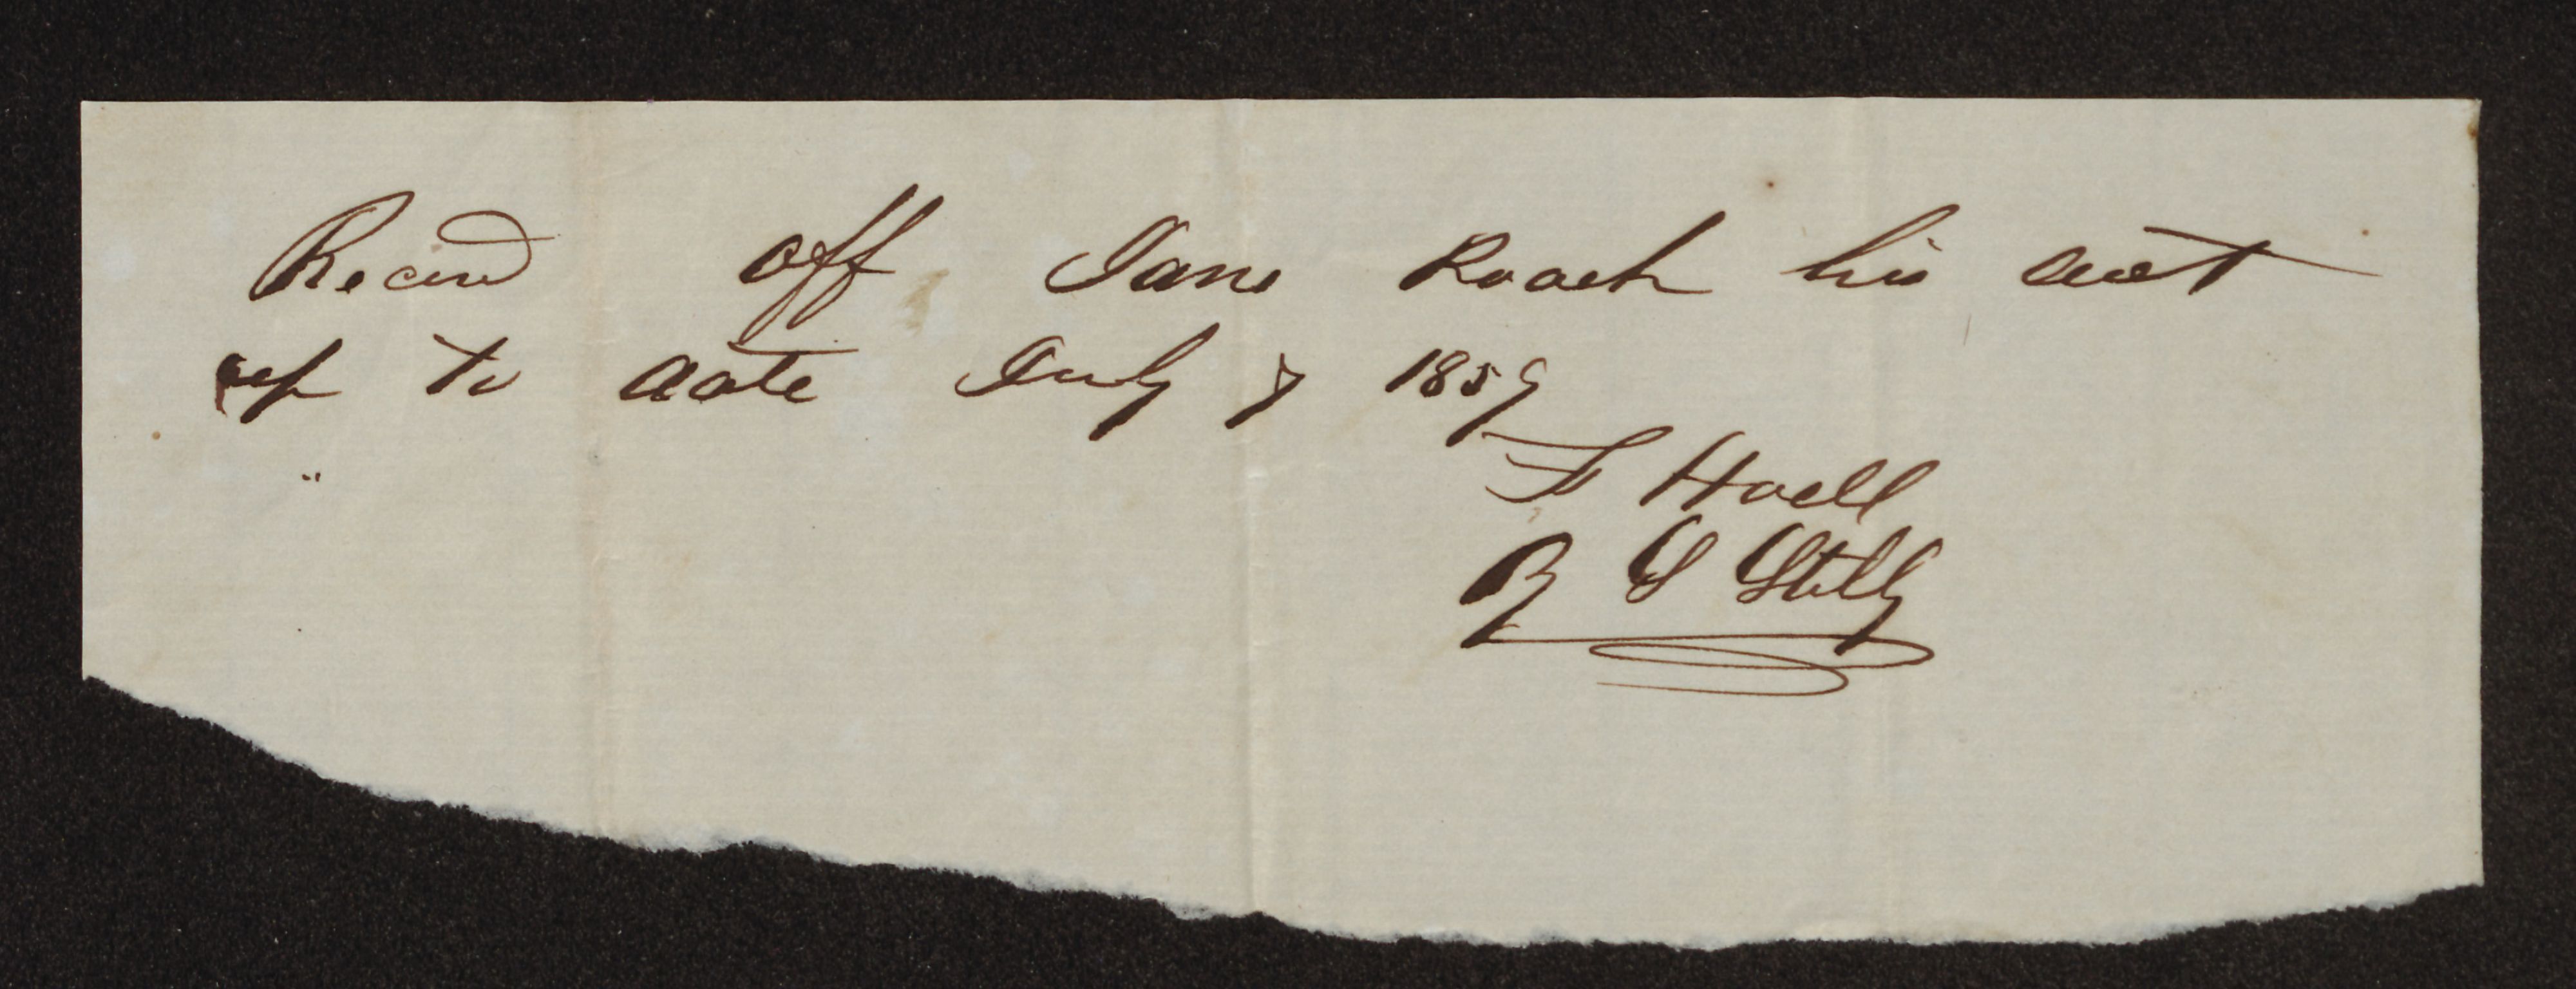 Recievd off Jane Roach his acct
up to date July 7 1859
F Hoell
By S Stilly